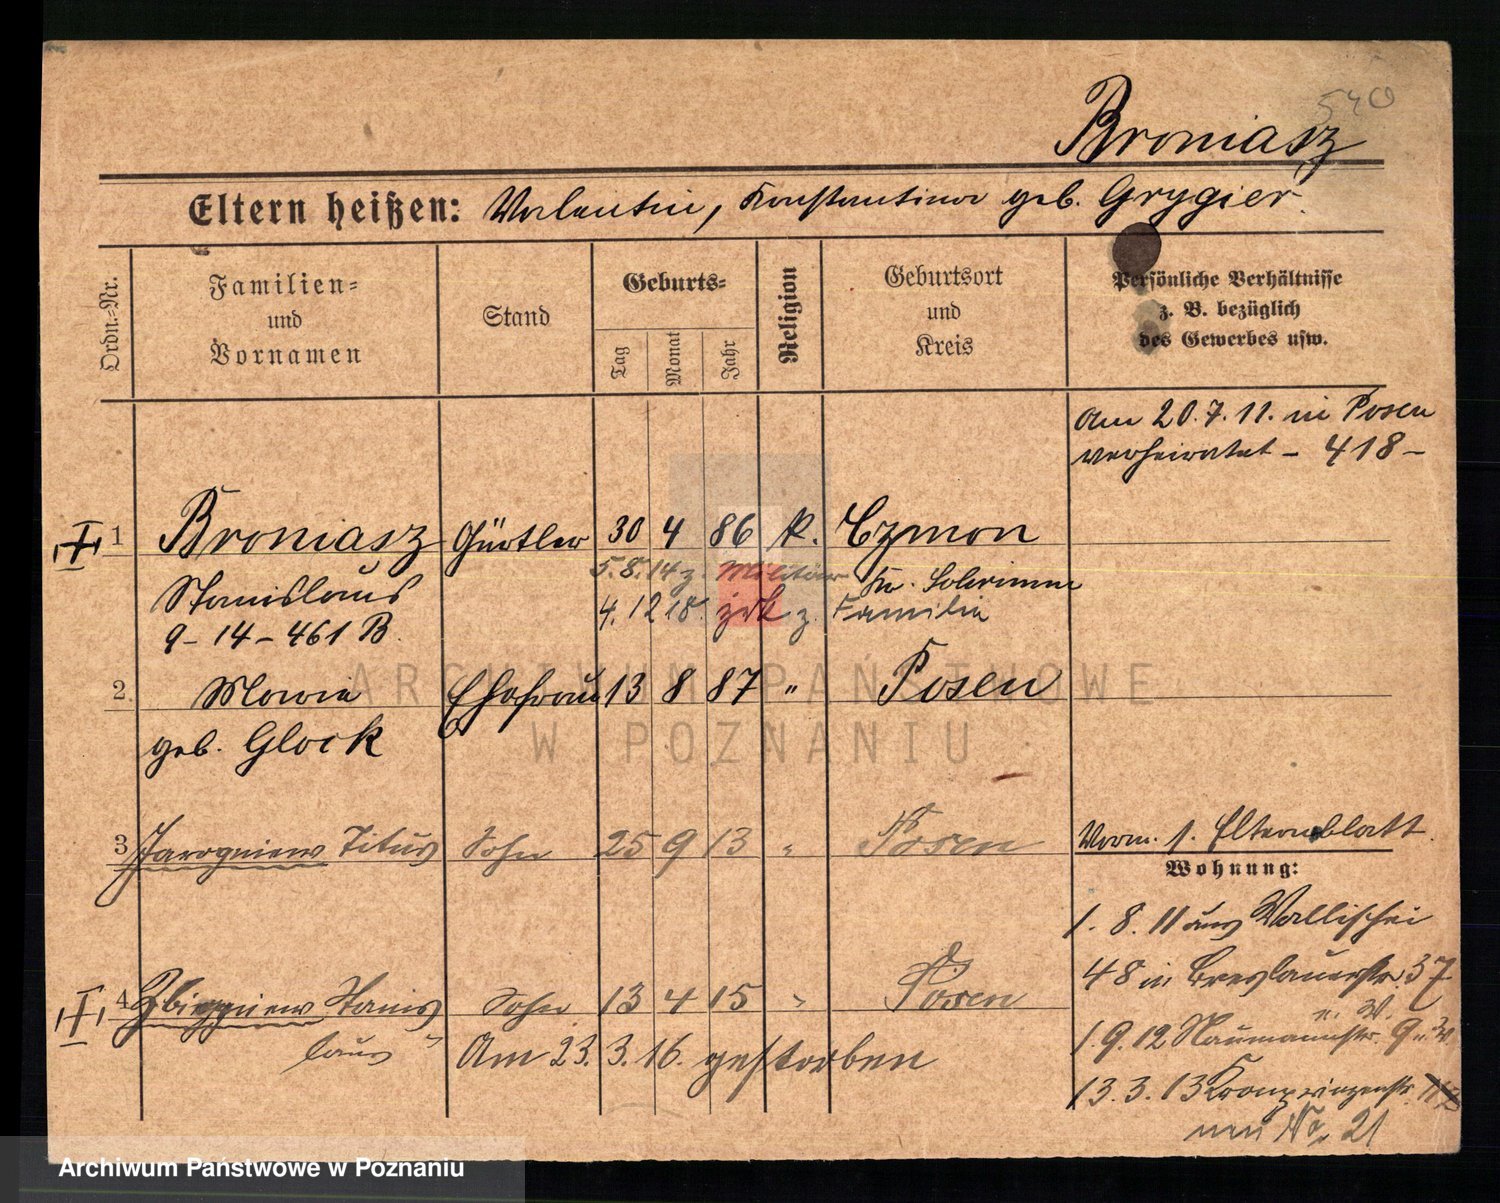 540
Broniasz
Eltern heißen: Valentin, Konstantina geb. Grygier.
Ordn.=Nr.
Familien=
und
Vornamen
Stand
Geburts=
Tag
Monat
Jahr
Religion
Geburtsort
und
Kreis
Persönliche Verhältnisse
z. B. bezüglich
des Gewerbes usw.
Am 20.7.11. in Posen
verheiratet – 418 –
1 Broniasz Gürtler 30 4 86 k. Czmon
5.8.14 z. Militär Kr. Schrimm
Stanislaus
4.12.18. zrk z. Familie
9 – 14 – 461 B.
2 Maria Ehefrau 13 8 87 " Posen
geb. Glock
3 Jarogniew Titus Sohn 25 9 13 " Posen
Vorm. s. Elternblatt.
Wohnung:
1. 8. 11 aus Wallischei
48 in Breslauerstr. 37
4 Zbigniew Stanis Sohn 13 4 15 " Posen
laus " Am 23. 3. 16. gestorben
1.9.12 Naumannstr. 9
13.3.13 Kronprinzenstr.
neu No. 21
ARCHIWUM PAŃSTWOWE
W POZNANIU
Archiwum Państwowe w Poznaniu